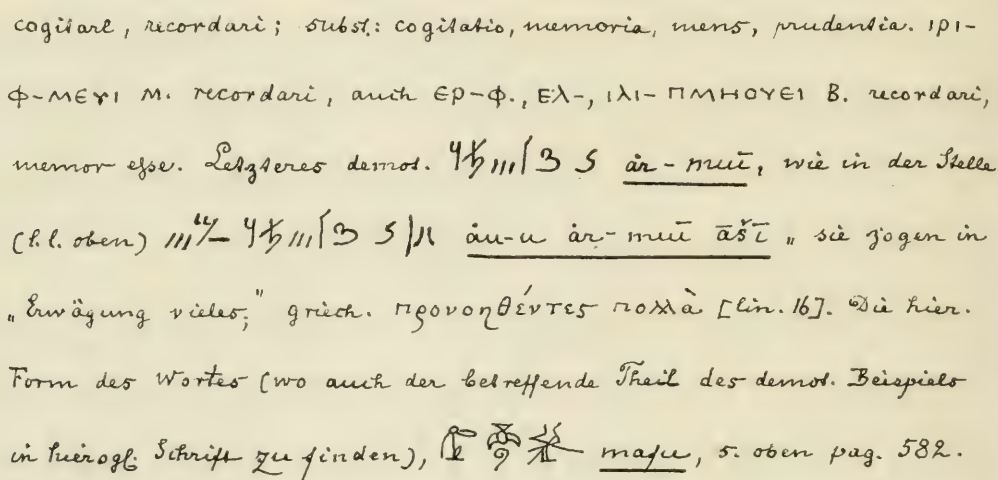 cogitare, recordari; subst.: cogitatio, memoria, mens, prudentia. ⲓⲣⲓ-
ⲫ-ⲙⲉⲩⲓ M. recordari, auch ⲉⲣ-ⲫ., ⲉⲗ-, ⲓⲗⲓ- ⲡⲙⲏⲟⲩⲉⲓ B. recordari,
memor esse. Letzteres demot. år-muī, wie in der Stelle
(l.l. oben) åu-u år-muī āšī „sie zogen in
„Erwägung vieles," griech. προνοηθέντες πολλὰ [lin. 16]. Die hier.
Form des Wortes (wo auch der betreffende Theil des demot. Beispiels
in hierogl. Schrift zu finden), s. oben pag. 582.